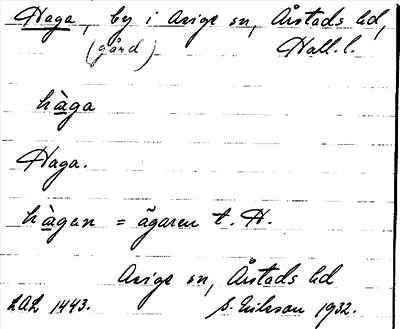 Haga, by i Asige sn, Årstads hd,
(gård) Hall. l.
hàga
Haga.
hàgen = ägaren t. H.
Asige sn, Årstads hd
LAL 1443. S. Erikson 1932.